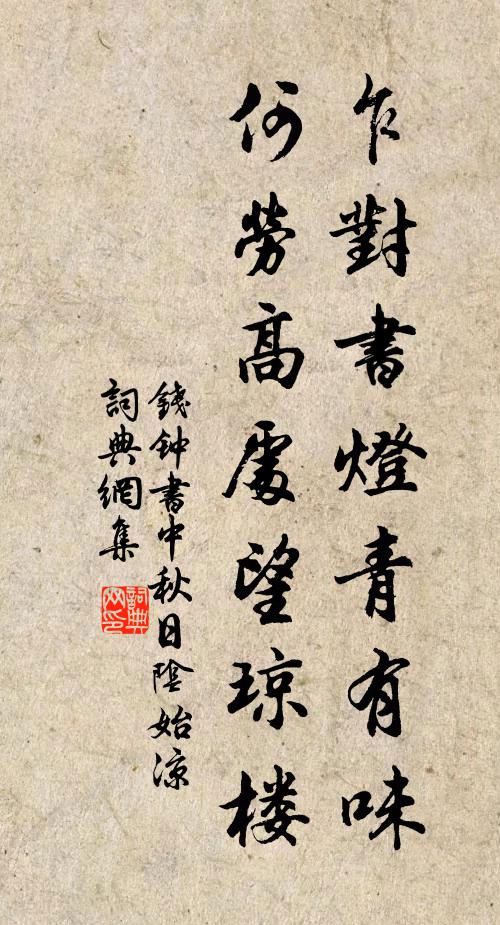 乍對書燈青有味
何勞高處望琼楼
錢钟書中秋日陰始凉
詞典網集
詞典网印